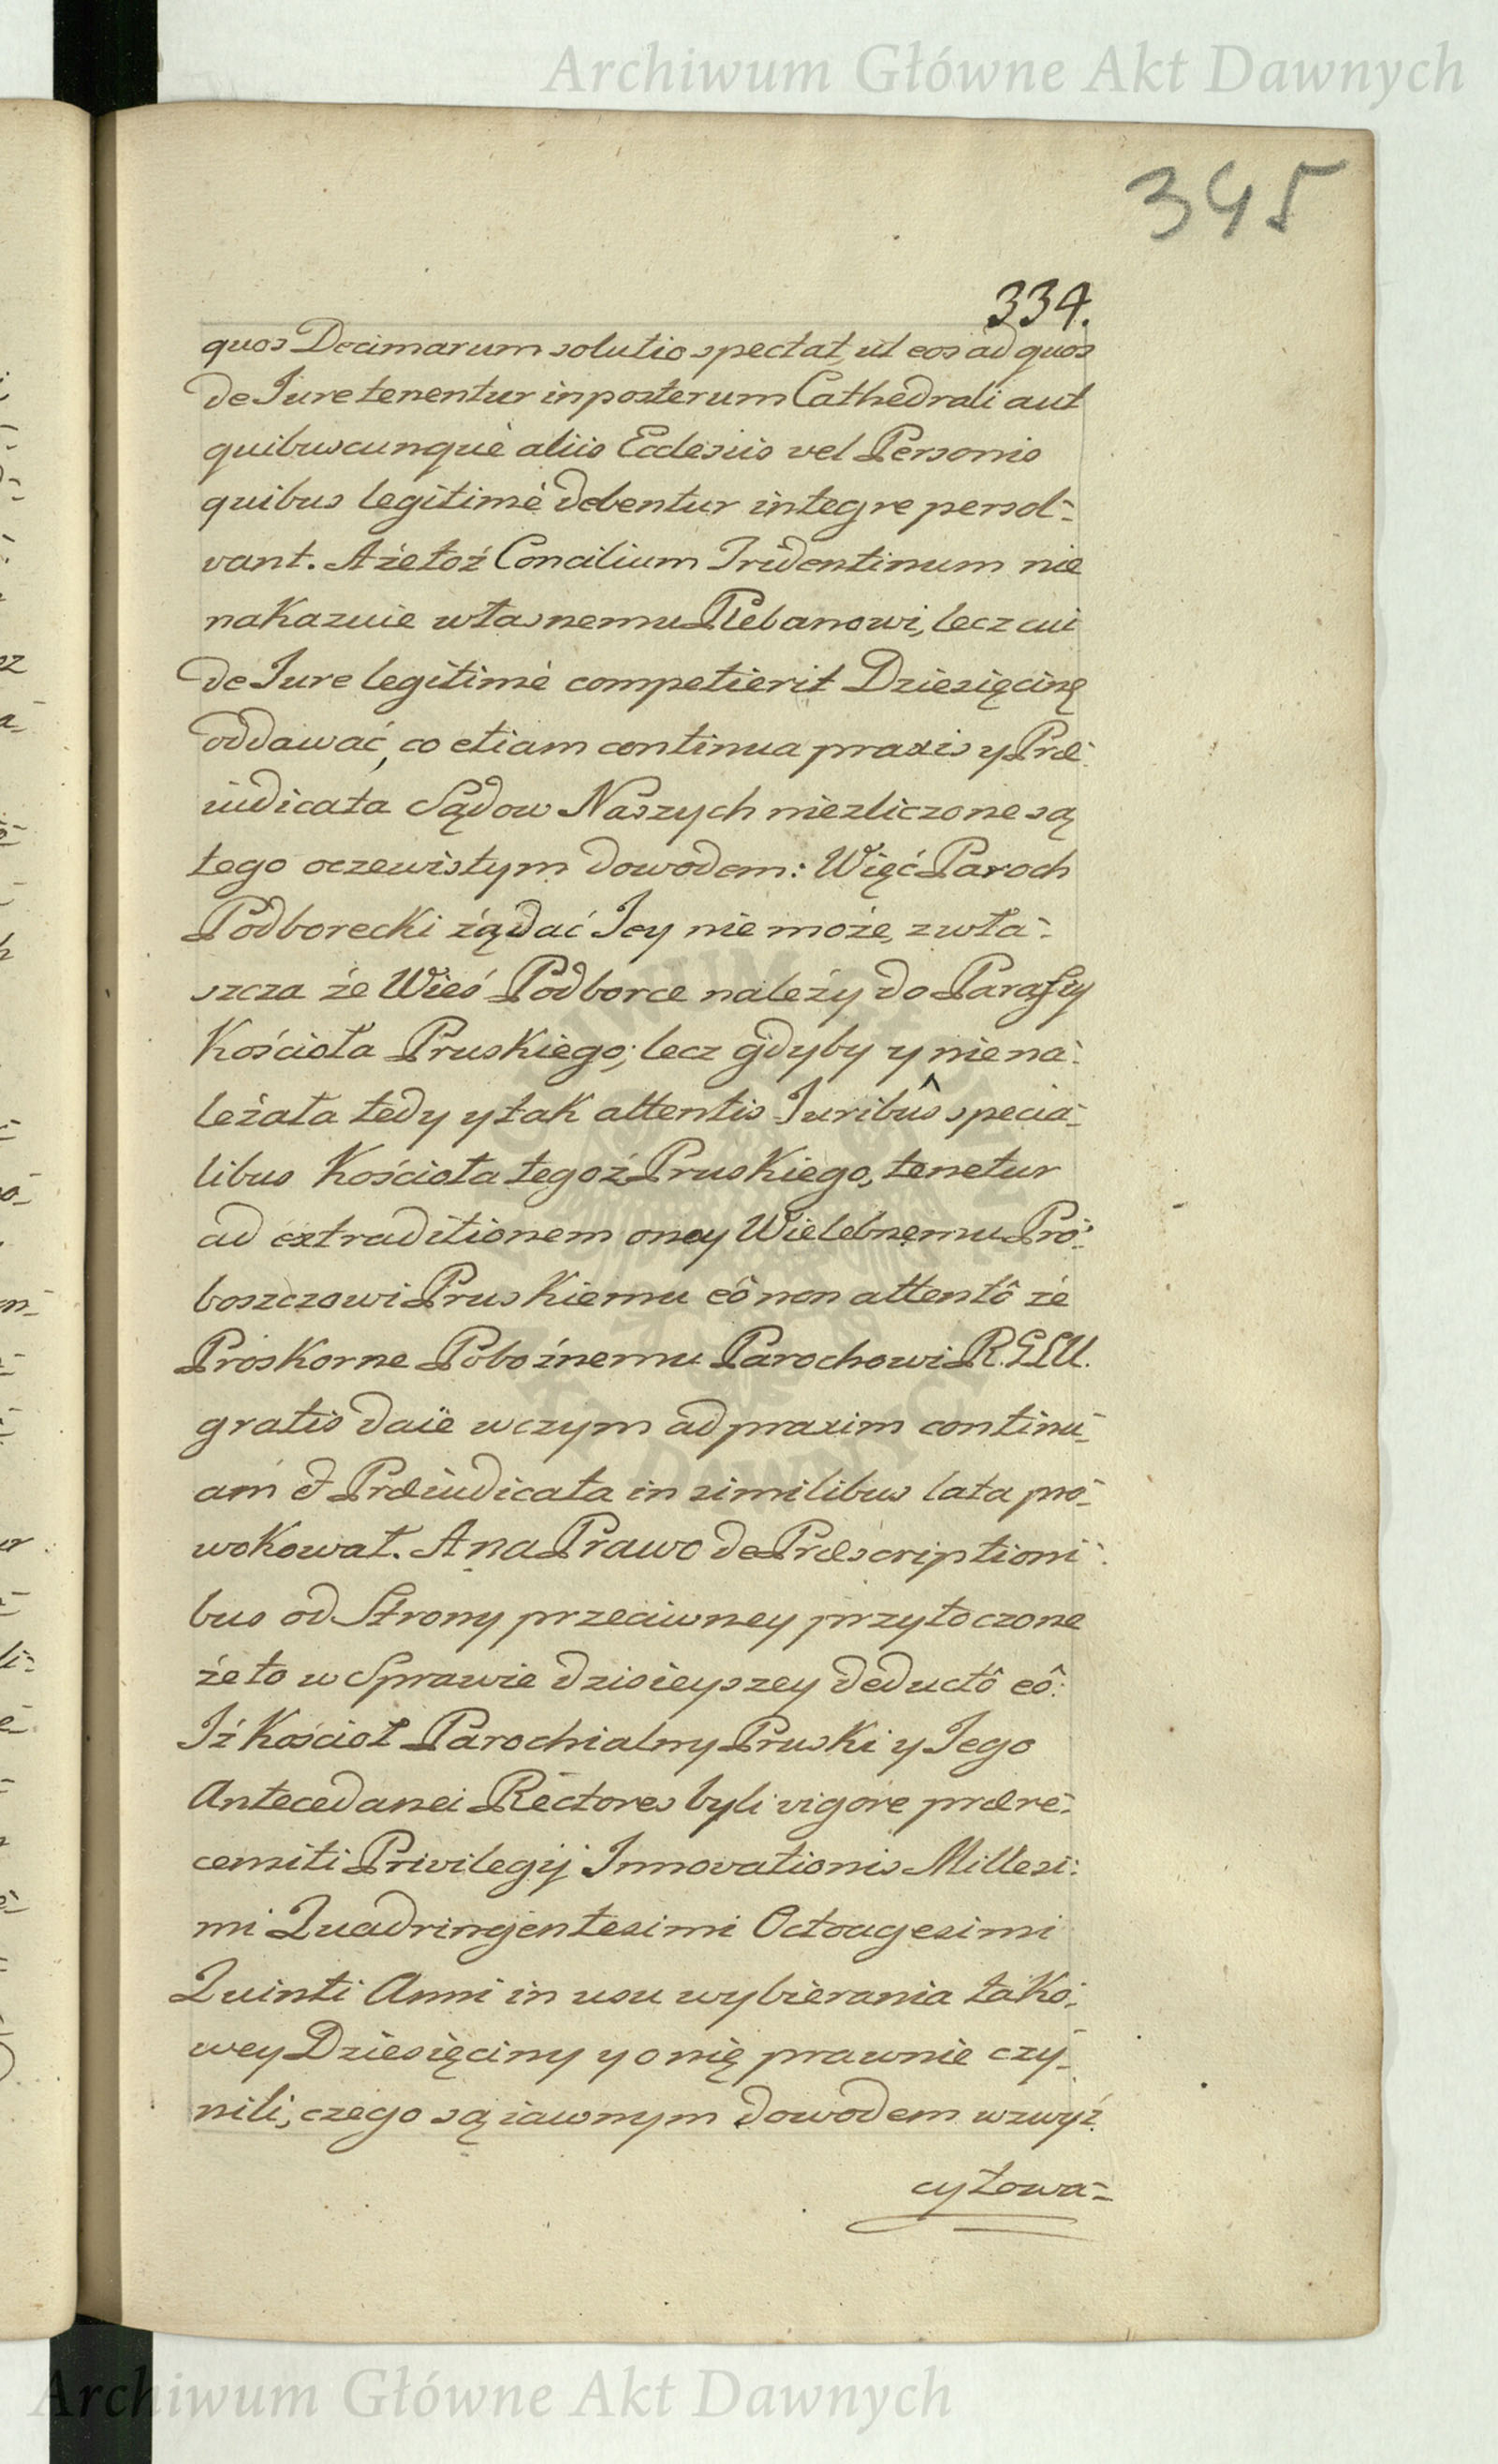 Archiwum Główne Akt Dawnych
345
334.
quos Decimarum solutio spectat, ut eos ad quos
de Iure tenentur in posterum Cathedrali aut
quibuscunque aliis Ecclesiis vel Personis
quibus legitimè debentur integre persol-
vant. A że toż Concilium Tridentinum nie
nakazuie własnemu Plebanowi, lecz cui
de Iure legitimè competierit Dziesięcinę
oddawać, co etiam continua praxis y Præ-
iudicata Sądow Naszych niezliczone są
tego oczewistym dowodem: Więć Paroch
Podborecki żądać Jey nie może, zwła-
szcza że Wieś Podborce należy do Parafiy
Kościoła Pruskiego; lecz gdyby y niena-
leżała tedy y tak attentis Juribus specia-
libus Kościoła tegoż Pruskiego, tenetur
ad extraditionem oney Wielebnemu Pro-
boszczowi Pruskiemu eô non attentô że
Proskorne Pobożnemu Parochowi R.G.U.
gratis daie w czym ad praxim continu-
am et Præiudicata in similibus lata pro-
wokował. A na Prawo de Præscriptioni-
bus od Strony przeciwney przytoczone
że to w Sprawie dzisieyszey deductô eô:
Iż Kościoł Parochialny Pruski y Jego
Antecedanei Rectores byli vigore prære-
censiti Privilegij Innovationis Millesi-
mi Quadringentesimi Octoagesimi
Quinti Anni in usu wybierania tako-
wey Dziesięciny y o nię prawnie czy-
nili, czego są iawnym dowodem wzwyż
cytowa-
Archiwum Główne Akt Dawnych